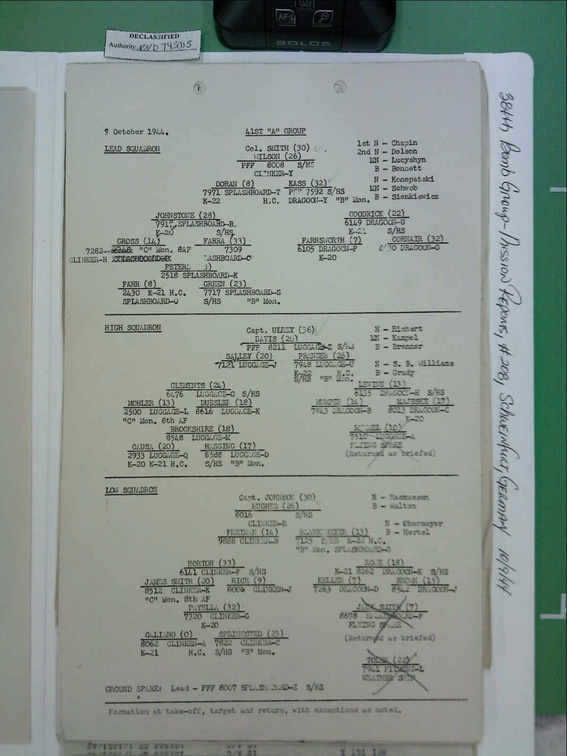 AF-L
BOLDS
DECLASSIFIED
Authority NND 745005
384th Bomb Group - Mission Reports, #208, Schweinfurt, Germany 10/9/44
9 October 1944.
41ST "A" GROUP
LEAD SQUADRON
Col. SMITH (30)
1st N - Chapin
WILSON (26)
2nd N - Dolson
PFF 8008 S/HS
MN - Lucyshyn
CLINKER-Y
B - Bonnett
DORAN (8) KASS (32)
N - Konopatski
7971 SPLASHBOARD-T PFF 7592 S/HS
MN - Schwob
K-22 H.C. DRAGOON-Y "B" Mon.
B - Sienkiewicz
JOHNSTONE (28) GOODRICK (22)
7917 SPLASHBOARD-B 6149 DRAGOON-U
K-20 S/HS K-21 S/HS
GROSS (14) FARRA (33) FARNSWORTH (7) CORNAIR (32)
7282 "C" Mon. 8AF 7309 6105 DRAGOON-P DRAGOON-G
CLINKER-H DASHBOARD-C K-20
PETERS
2518 SPLASHBOARD-K
FAHR (8) GREEN (23)
2430 K-21 H.C. 7717 SPLASHBOARD-S
SPLASHBOARD-O S/HS "B" Mon.
HIGH SQUADRON
Capt. ULREY (36)
N - Richert
DAVIS (20)
MN - Kampel
PFF 8211 LUGGAGE-Z S/HS
B - Brenner
SALLEY (20) PRANGER (26)
N - S. B. Williams
7121 LUGGAGE-J 7948 LUGGAGE-U
B - Grady
K-22 H.C.
S/HS "B" Mon.
CLEMENTS (24) LEVINE (13)
6476 LUGGAGE-G S/HS 6135 DRAGOON-H S/HS
MOHLER (13) DUESLER (18) (14) MAJESKE (17)
2500 LUGGAGE-L 8616 LUGGAGE-K 7843 DRAGOON-B 8013 DRAGOON-C
"C" Mon. 8th AF K-20
BROOKSHIRE (18) (10)
8548 LUGGAGE-M 7310 LUGGAGE-A
CAUSA (20) HASSING (17) FLYING SPARE
2933 LUGGAGE-Q 6588 LUGGAGE-D (Returned as briefed)
K-20 K-21 H.C. S/HS "B" Mon.
LOW SQUADRON
Capt. JOHNSON (30)
N - Rasmussen
HUGHES (26)
B - Walton
8016 S/HS
CLINKER-R
N - Obermeyer
FREEMAN (14) (13)
B - Hertel
9888 CLINKER-B 7125 S/HS K-22 H.C.
"B" Mon. SPLASHBOARD-G
NORTON (33) ROSE (18)
6141 CLINKER-F S/HS K-21 8262 DRAGOON-K S/HS
JAMES SMITH (20) RICH (9) KELLER (7) BROWN (15)
8512 CLINKER-K 8004 CLINKER-J 7263 DRAGOON-D 8542 DRAGOON-J
"C" Mon. 8th AF
PATELLA (32) JACK SMITH (7)
7320 CLINKER-G 8678 SPLASHBOARD-F
K-20 FLYING SPARE
GALIANO (0) SPRINGSTED (23) (Returned as briefed)
8062 CLINKER-A 7822 CLINKER-C
K-21 H.C. S/HS "B" Mon.
(22)
7941
WEATHER SHIP
GROUND SPARE: Lead - PFF 8007 SPLASHBOARD-Z S/HS
Formation at take-off, target and return, with exceptions as noted.